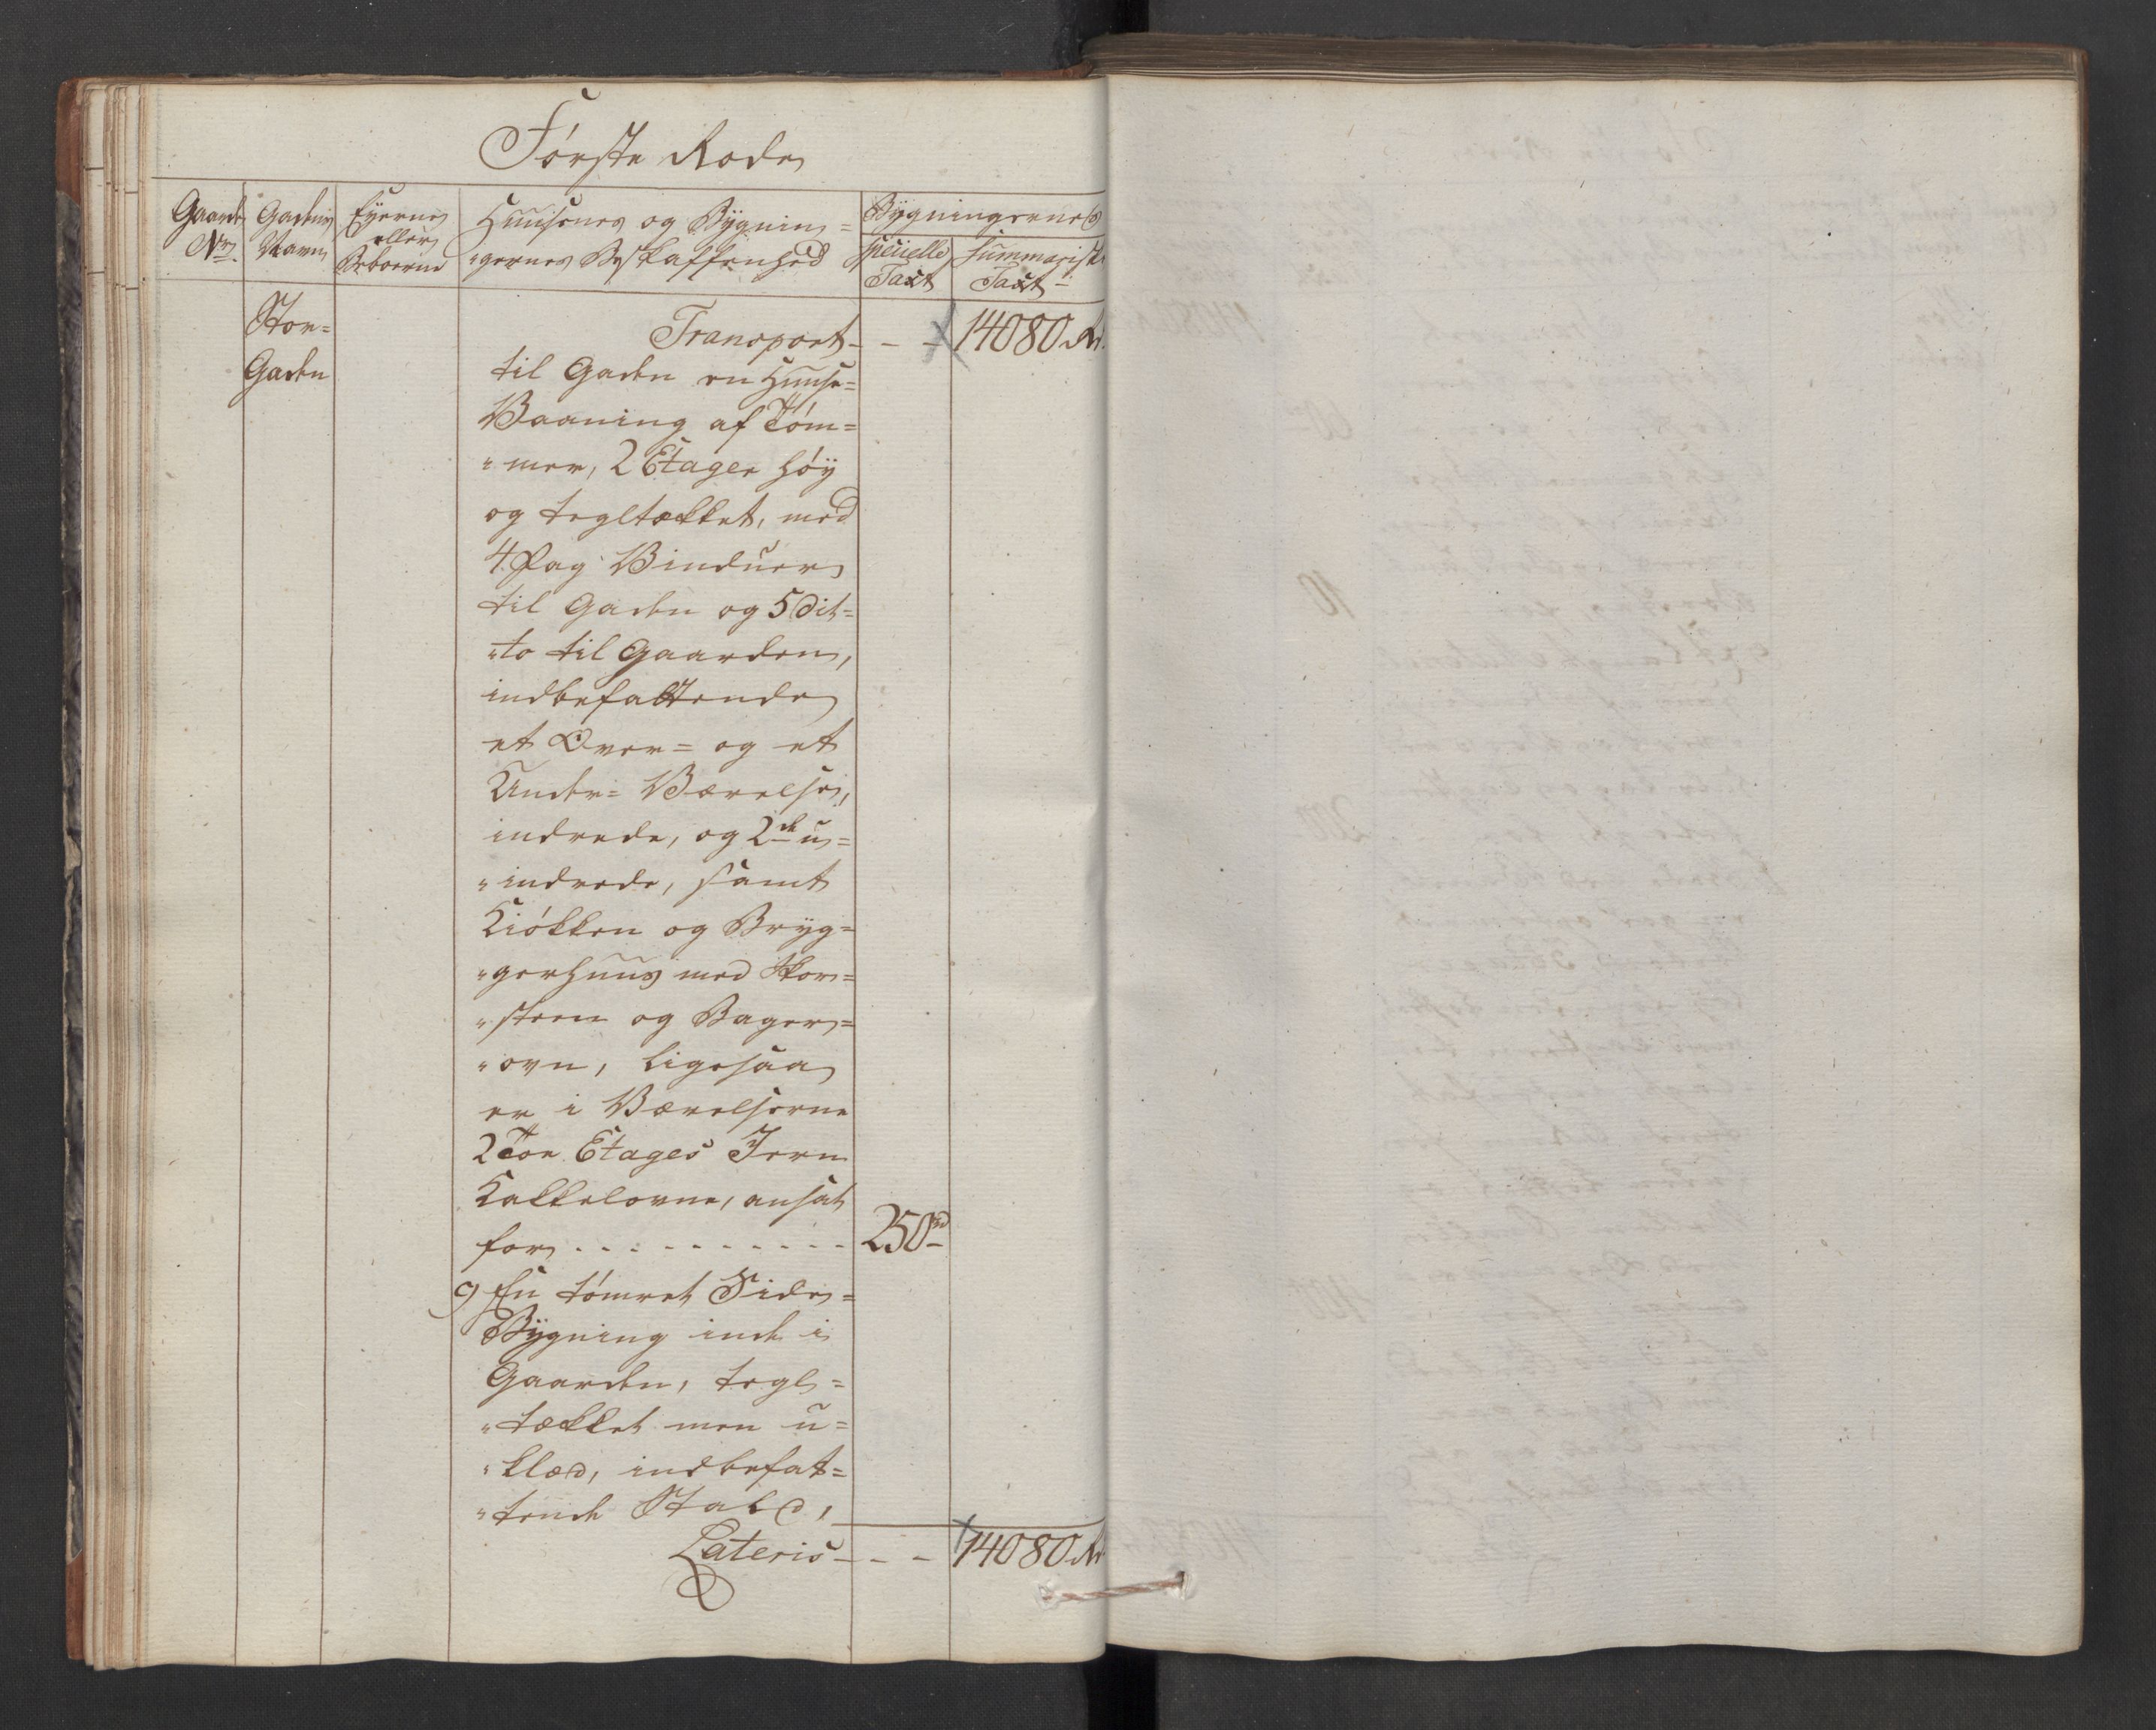 Første Rode
Gaards No.
Gadens Navn
Eyernes eller Beboerne
Huusenes og Bygnin=
"gernes Beskaffenhed
Bygningernes
specielle Taxt
summariske Taxt
Stor=
Gaden
Transport - - - 14080 Rd.
til Gaden en Huuse=
Vaaning af Töm=
"mer, 2 Etager høÿ
og tegltækket, med
4 Fag Vinduer
til Gaden og 5 Dit=
"to til Gaarden,
indbefattende
et Over= og et
Under= Værelse,
indrede, og 2de u=
"indrede, samt
Kiökken og Bryg=
"gerhuus med Skor=
"steen og Bager=
"ovn, ligesaa
er i Værelserne
2 Toe Etages Jern
Kakkelovne, ansat
for . . . - - - - - - - 250 rd
g En tömret Side=
Bÿgning inde i
Gaarden, tegl=
"tækket men u=
"klæd, indbefat=
"tende Stald,
Lateris - - - 14080 Rd